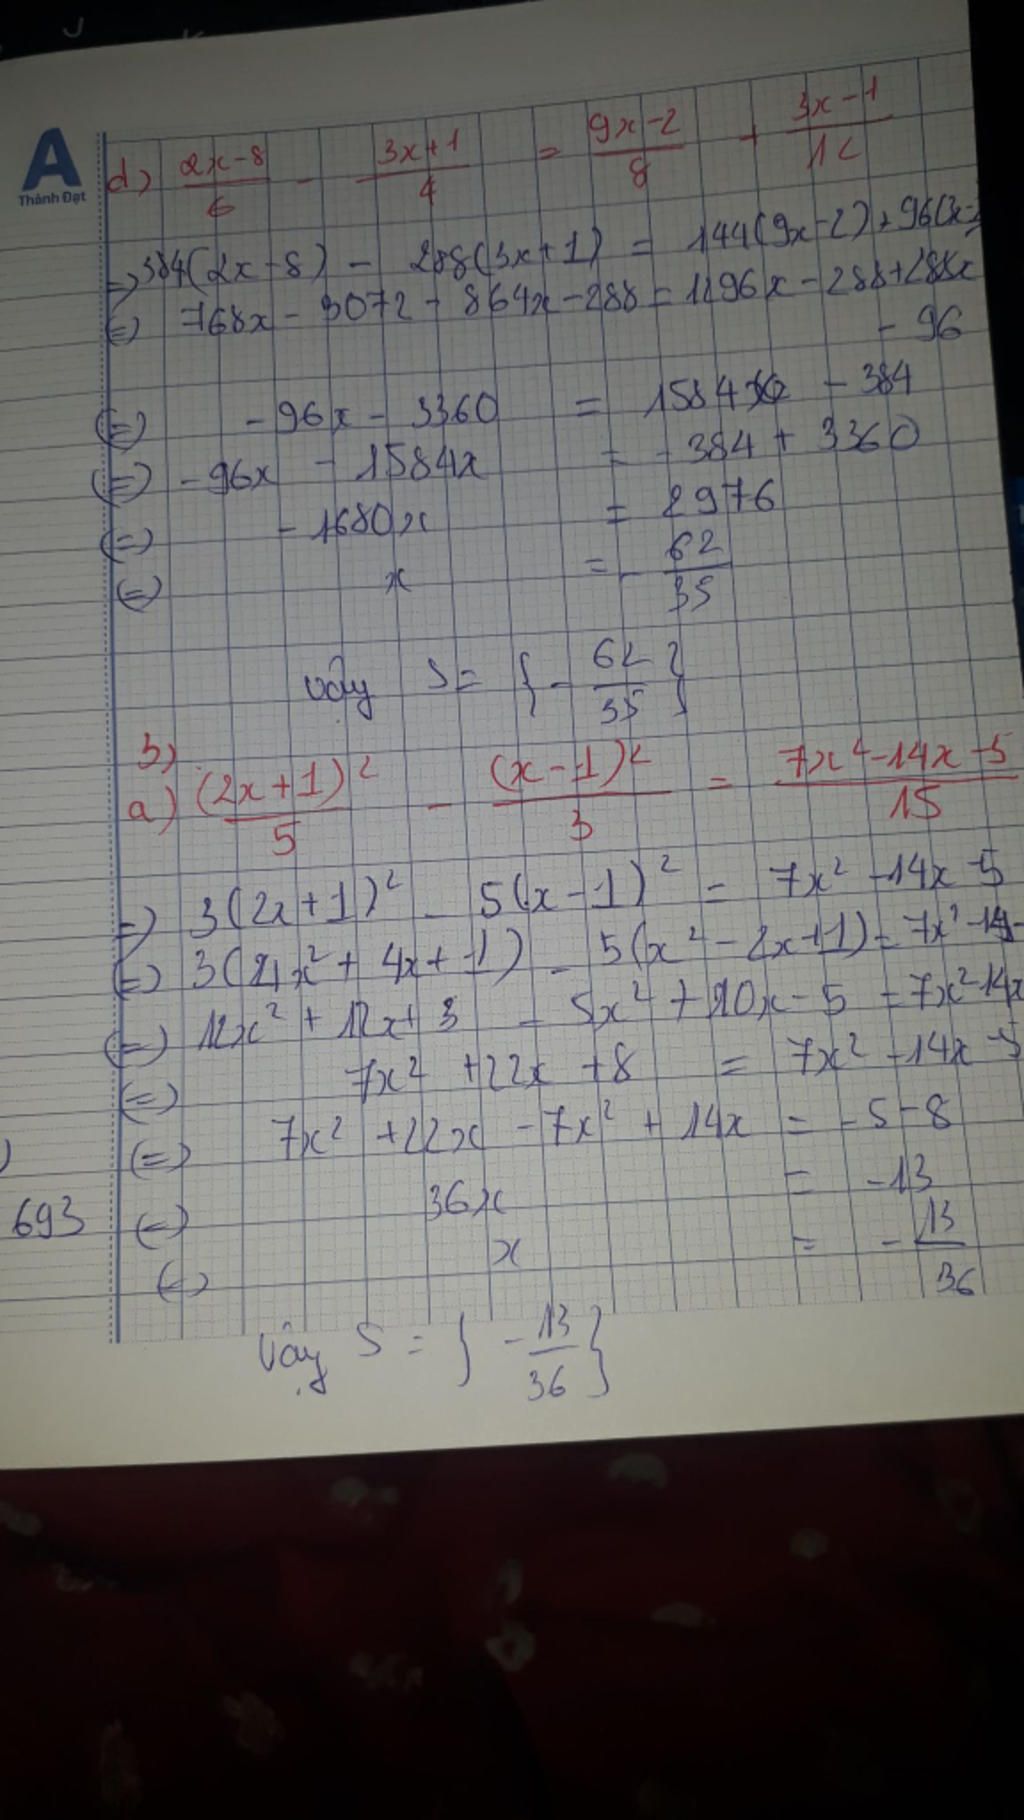 A
Thành Đạt
d) (2x-8)/6 - (3x+1)/4 = (9x-2)/8 + (3x-1)/12
=> 384(2x-8) - 288(3x+1) = 144(9x-2) + 96(3x-
(=) 768x - 3072 - 864x - 288 = 1296x - 288 + 288x
- 96
(=) -96x - 3360 = 1584x - 384
(=) -96x - 1584x = -384 + 3360
(=) -1680x = 2976
(=) x = - 62/35
Vậy S = { - 62/35 }
3)
a) (2x+1)²/5 - (x-1)²/3 = (7x²-14x-5)/15
=) 3(2x+1)² - 5(x-1)² = 7x² -14x -5
(=) 3(4x² + 4x + 1) - 5(x² - 2x + 1) = 7x² -14
(=) 12x² + 12x + 3 - 5x² + 10x - 5 = 7x² -14x
(=) 7x² + 22x + 8 = 7x² -14x -5
(=) 7x² + 22x - 7x² + 14x = -5 -8
693
(=) 36x = -13
(=) x = - 13/36
Vậy S = { - 13/36 }